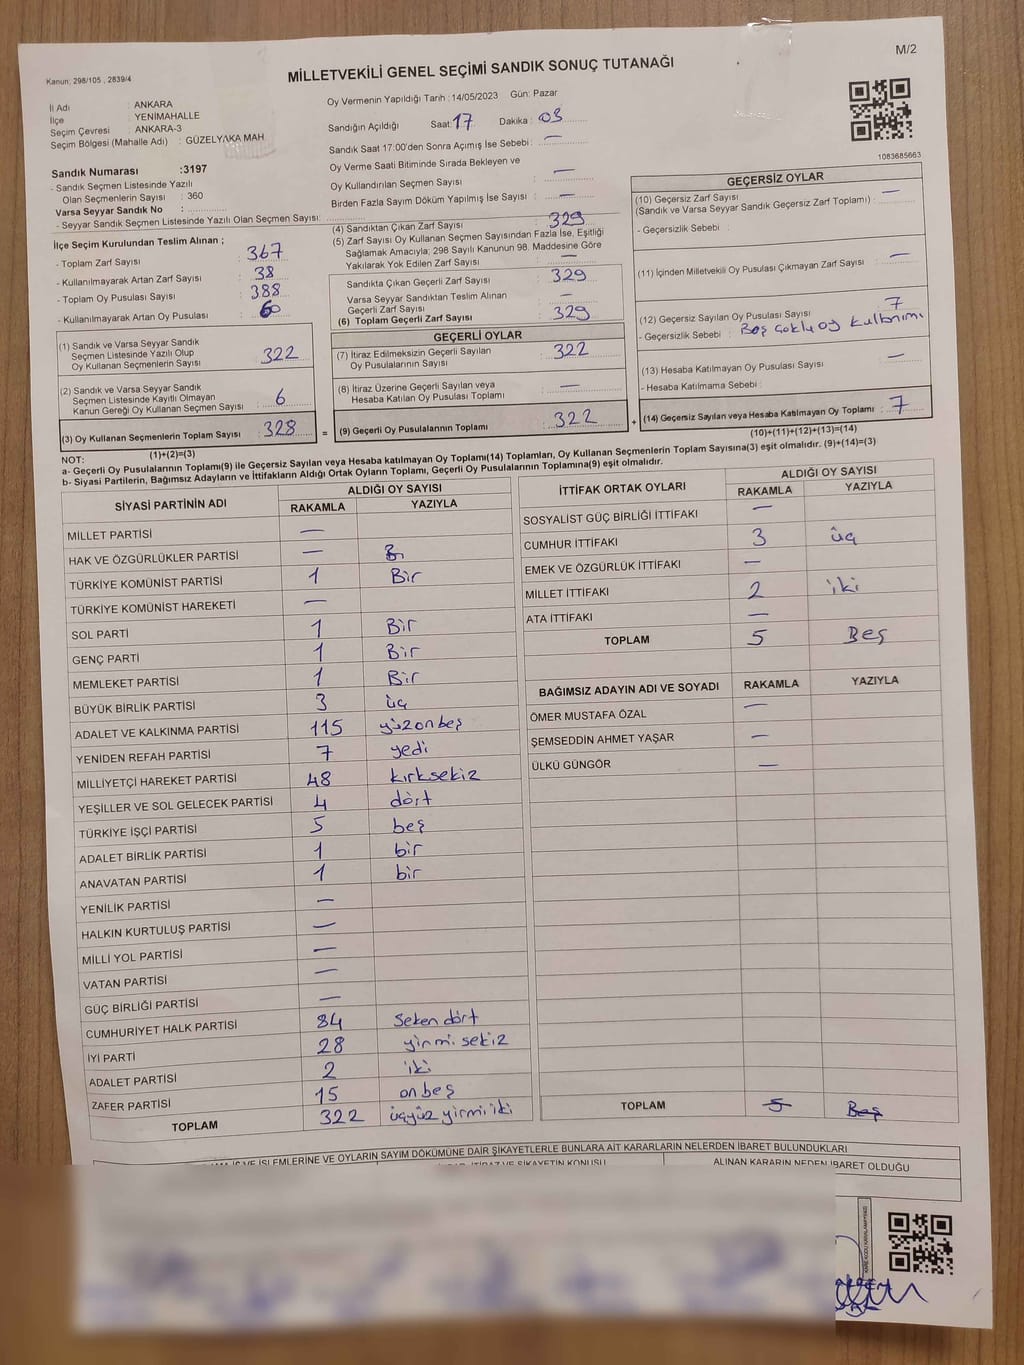 M/2
Kanun: 298/105 , 2839/4
MİLLETVEKİLİ GENEL SEÇİMİ SANDIK SONUÇ TUTANAĞI
İl Adı : ANKARA
İlçe : YENİMAHALLE
Seçim Çevresi : ANKARA-3
Seçim Bölgesi (Mahalle Adı) : GÜZELYAKA MAH
Sandık Numarası :3197
- Sandık Seçmen Listesinde Yazılı
Olan Seçmenlerin Sayısı : 360
Varsa Seyyar Sandık No :
- Seyyar Sandık Seçmen Listesinde Yazılı Olan Seçmen Sayısı:
İlçe Seçim Kurulundan Teslim Alınan ;
- Toplam Zarf Sayısı : 367
- Kullanılmayarak Artan Zarf Sayısı : 38
- Toplam Oy Pusulası Sayısı : 388
- Kullanılmayarak Artan Oy Pusulası : 60
(1) Sandık ve Varsa Seyyar Sandık
Seçmen Listesinde Yazılı Olup
Oy Kullanan Seçmenlerin Sayısı : 322
(2) Sandık ve Varsa Seyyar Sandık
Seçmen Listesinde Kayıtlı Olmayan
Kanun Gereği Oy Kullanan Seçmen Sayısı : 6
(3) Oy Kullanan Seçmenlerin Toplam Sayısı : 328
(1)+(2)=(3)
Oy Vermenin Yapıldığı Tarih :14/05/2023 Gün: Pazar
Sandığın Açıldığı Saat: 17 Dakika : 03
Sandık Saat 17:00'den Sonra Açımış İse Sebebi: —
Oy Verme Saati Bitiminde Sırada Bekleyen ve
Oy Kullandırılan Seçmen Sayısı : —
Birden Fazla Sayım Döküm Yapılmış İse Sayısı : —
(4) Sandıktan Çıkan Zarf Sayısı : 329
(5) Zarf Sayısı Oy Kullanan Seçmen Sayısından Fazla İse, Eşitliği
Sağlamak Amacıyla; 298 Sayılı Kanunun 98. Maddesine Göre
Yakılarak Yok Edilen Zarf Sayısı : —
Sandıkta Çıkan Geçerli Zarf Sayısı : 329
Varsa Seyyar Sandıktan Teslim Alınan
Geçerli Zarf Sayısı : —
(6) Toplam Geçerli Zarf Sayısı : 329
GEÇERLİ OYLAR
(7) İtiraz Edilmeksizin Geçerli Sayılan
Oy Pusulalarının Sayısı : 322
(8) İtiraz Üzerine Geçerli Sayılan veya
Hesaba Katılan Oy Pusulası Toplamı : —
= (9) Geçerli Oy Pusulalarının Toplamı : 322 +
1083685663
GEÇERSİZ OYLAR
(10) Geçersiz Zarf Sayısı : —
(Sandık ve Varsa Seyyar Sandık Geçersiz Zarf Toplamı) :
- Geçersizlik Sebebi :
(11) İçinden Milletvekili Oy Pusulası Çıkmayan Zarf Sayısı : —
(12) Geçersiz Sayılan Oy Pusulası Sayısı : 7
- Geçersizlik Sebebi : Boş çoklu oy kullanımı
(13) Hesaba Katılmayan Oy Pusulası Sayısı : —
- Hesaba Katılmama Sebebi :
(14) Geçersiz Sayılan veya Hesaba Katılmayan Oy Toplamı : 7
(10)+(11)+(12)+(13)=(14)
NOT:
a- Geçerli Oy Pusulalarının Toplamı(9) ile Geçersiz Sayılan veya Hesaba katılmayan Oy Toplamı(14) Toplamları, Oy Kullanan Seçmenlerin Toplam Sayısına(3) eşit olmalıdır. (9)+(14)=(3)
b- Siyasi Partilerin, Bağımsız Adayların ve İttifakların Aldığı Ortak Oyların Toplamı, Geçerli Oy Pusulalarının Toplamına(9) eşit olmalıdır.
SİYASİ PARTİNİN ADI ALDIĞI OY SAYISI
RAKAMLA YAZIYLA
MİLLET PARTİSİ —
HAK VE ÖZGÜRLÜKLER PARTİSİ —
TÜRKİYE KOMÜNİST PARTİSİ 1 Bir
TÜRKİYE KOMÜNİST HAREKETİ —
SOL PARTİ 1 Bir
GENÇ PARTİ 1 Bir
MEMLEKET PARTİSİ 1 Bir
BÜYÜK BİRLİK PARTİSİ 3 üç
ADALET VE KALKINMA PARTİSİ 115 yüzonbeş
YENİDEN REFAH PARTİSİ 7 yedi
MİLLİYETÇİ HAREKET PARTİSİ 48 kırksekiz
YEŞİLLER VE SOL GELECEK PARTİSİ 4 dört
TÜRKİYE İŞÇİ PARTİSİ 5 beş
ADALET BİRLİK PARTİSİ 1 bir
ANAVATAN PARTİSİ 1 bir
YENİLİK PARTİSİ —
HALKIN KURTULUŞ PARTİSİ —
MİLLİ YOL PARTİSİ —
VATAN PARTİSİ —
GÜÇ BİRLİĞİ PARTİSİ —
CUMHURİYET HALK PARTİSİ 84 Seken dört
İYİ PARTİ 28 yirmi sekiz
ADALET PARTİSİ 2 iki
ZAFER PARTİSİ 15 onbeş
TOPLAM 322 üçyüz yirmi iki
İTTİFAK ORTAK OYLARI ALDIĞI OY SAYISI
RAKAMLA YAZIYLA
SOSYALİST GÜÇ BİRLİĞİ İTTİFAKI —
CUMHUR İTTİFAKI 3 üç
EMEK VE ÖZGÜRLÜK İTTİFAKI —
MİLLET İTTİFAKI 2 iki
ATA İTTİFAKI —
TOPLAM 5 Beş
BAĞIMSIZ ADAYIN ADI VE SOYADI RAKAMLA YAZIYLA
ÖMER MUSTAFA ÖZAL —
ŞEMSEDDİN AHMET YAŞAR —
ÜLKÜ GÜNGÖR —
TOPLAM 5 Beş
İŞLEMLERİNE VE OYLARIN SAYIM DÖKÜMÜNE DAİR ŞİKAYETLERLE BUNLARA AİT KARARLARIN NELERDEN İBARET BULUNDUKLARI
İTİRAZ VE ŞİKAYETİN KONUSU ALINAN KARARIN NEDEN İBARET OLDUĞU